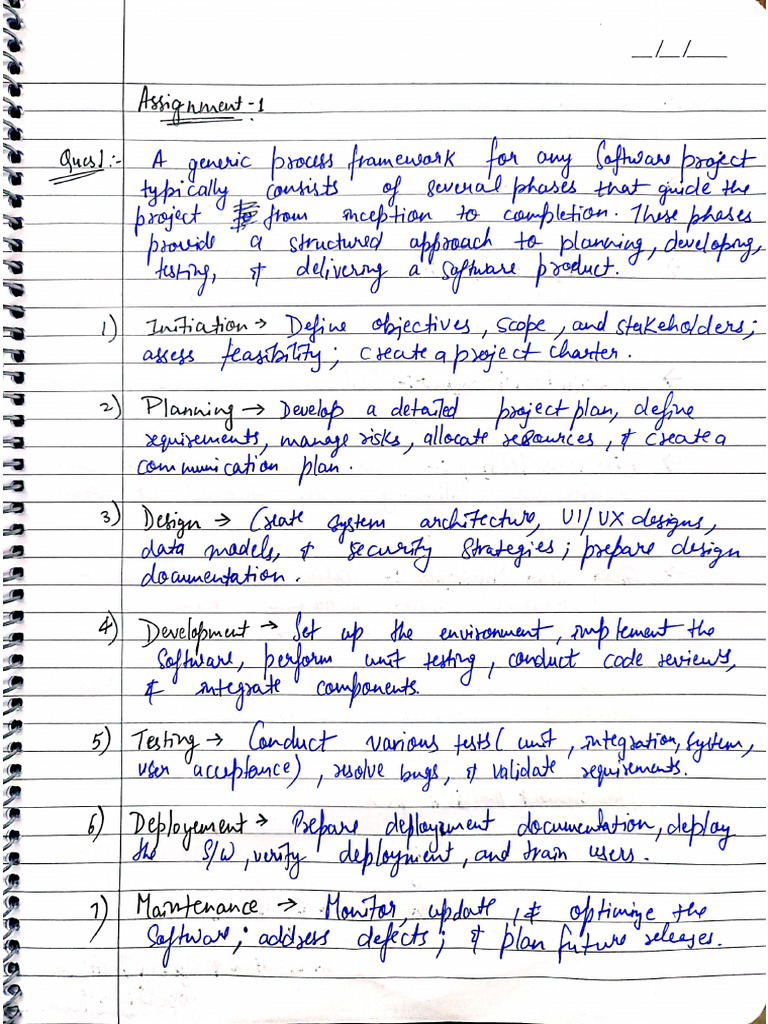 _/_/__
Assignment-1
Ques1:- A generic process framework for any Software project
typically consists of several phases that guide the
project from inception to completion. These phases
provide a structured approach to planning, developing,
testing, & delivering a software product.
1) Initiation → Define objectives, scope, and stakeholders;
assess feasibility; create a project charter.
2) Planning → Develop a detailed project plan, define
requirements, manage risks, allocate resources, & create a
communication plan.
3) Design → Create system architecture, UI/UX designs,
data models, & security strategies; prepare design
documentation.
4) Development → Set up the environment, implement the
software, perform unit testing, conduct code reviews,
& integrate components.
5) Testing → Conduct various tests (unit, integration, system,
user acceptance), resolve bugs, & validate requirements.
6) Deployement → Prepare deployment documentation, deploy
the S/W, verify deployment, and train users.
7) Maintenance → Monitor, update, & optimize the
software; address defects; & plan future releases.